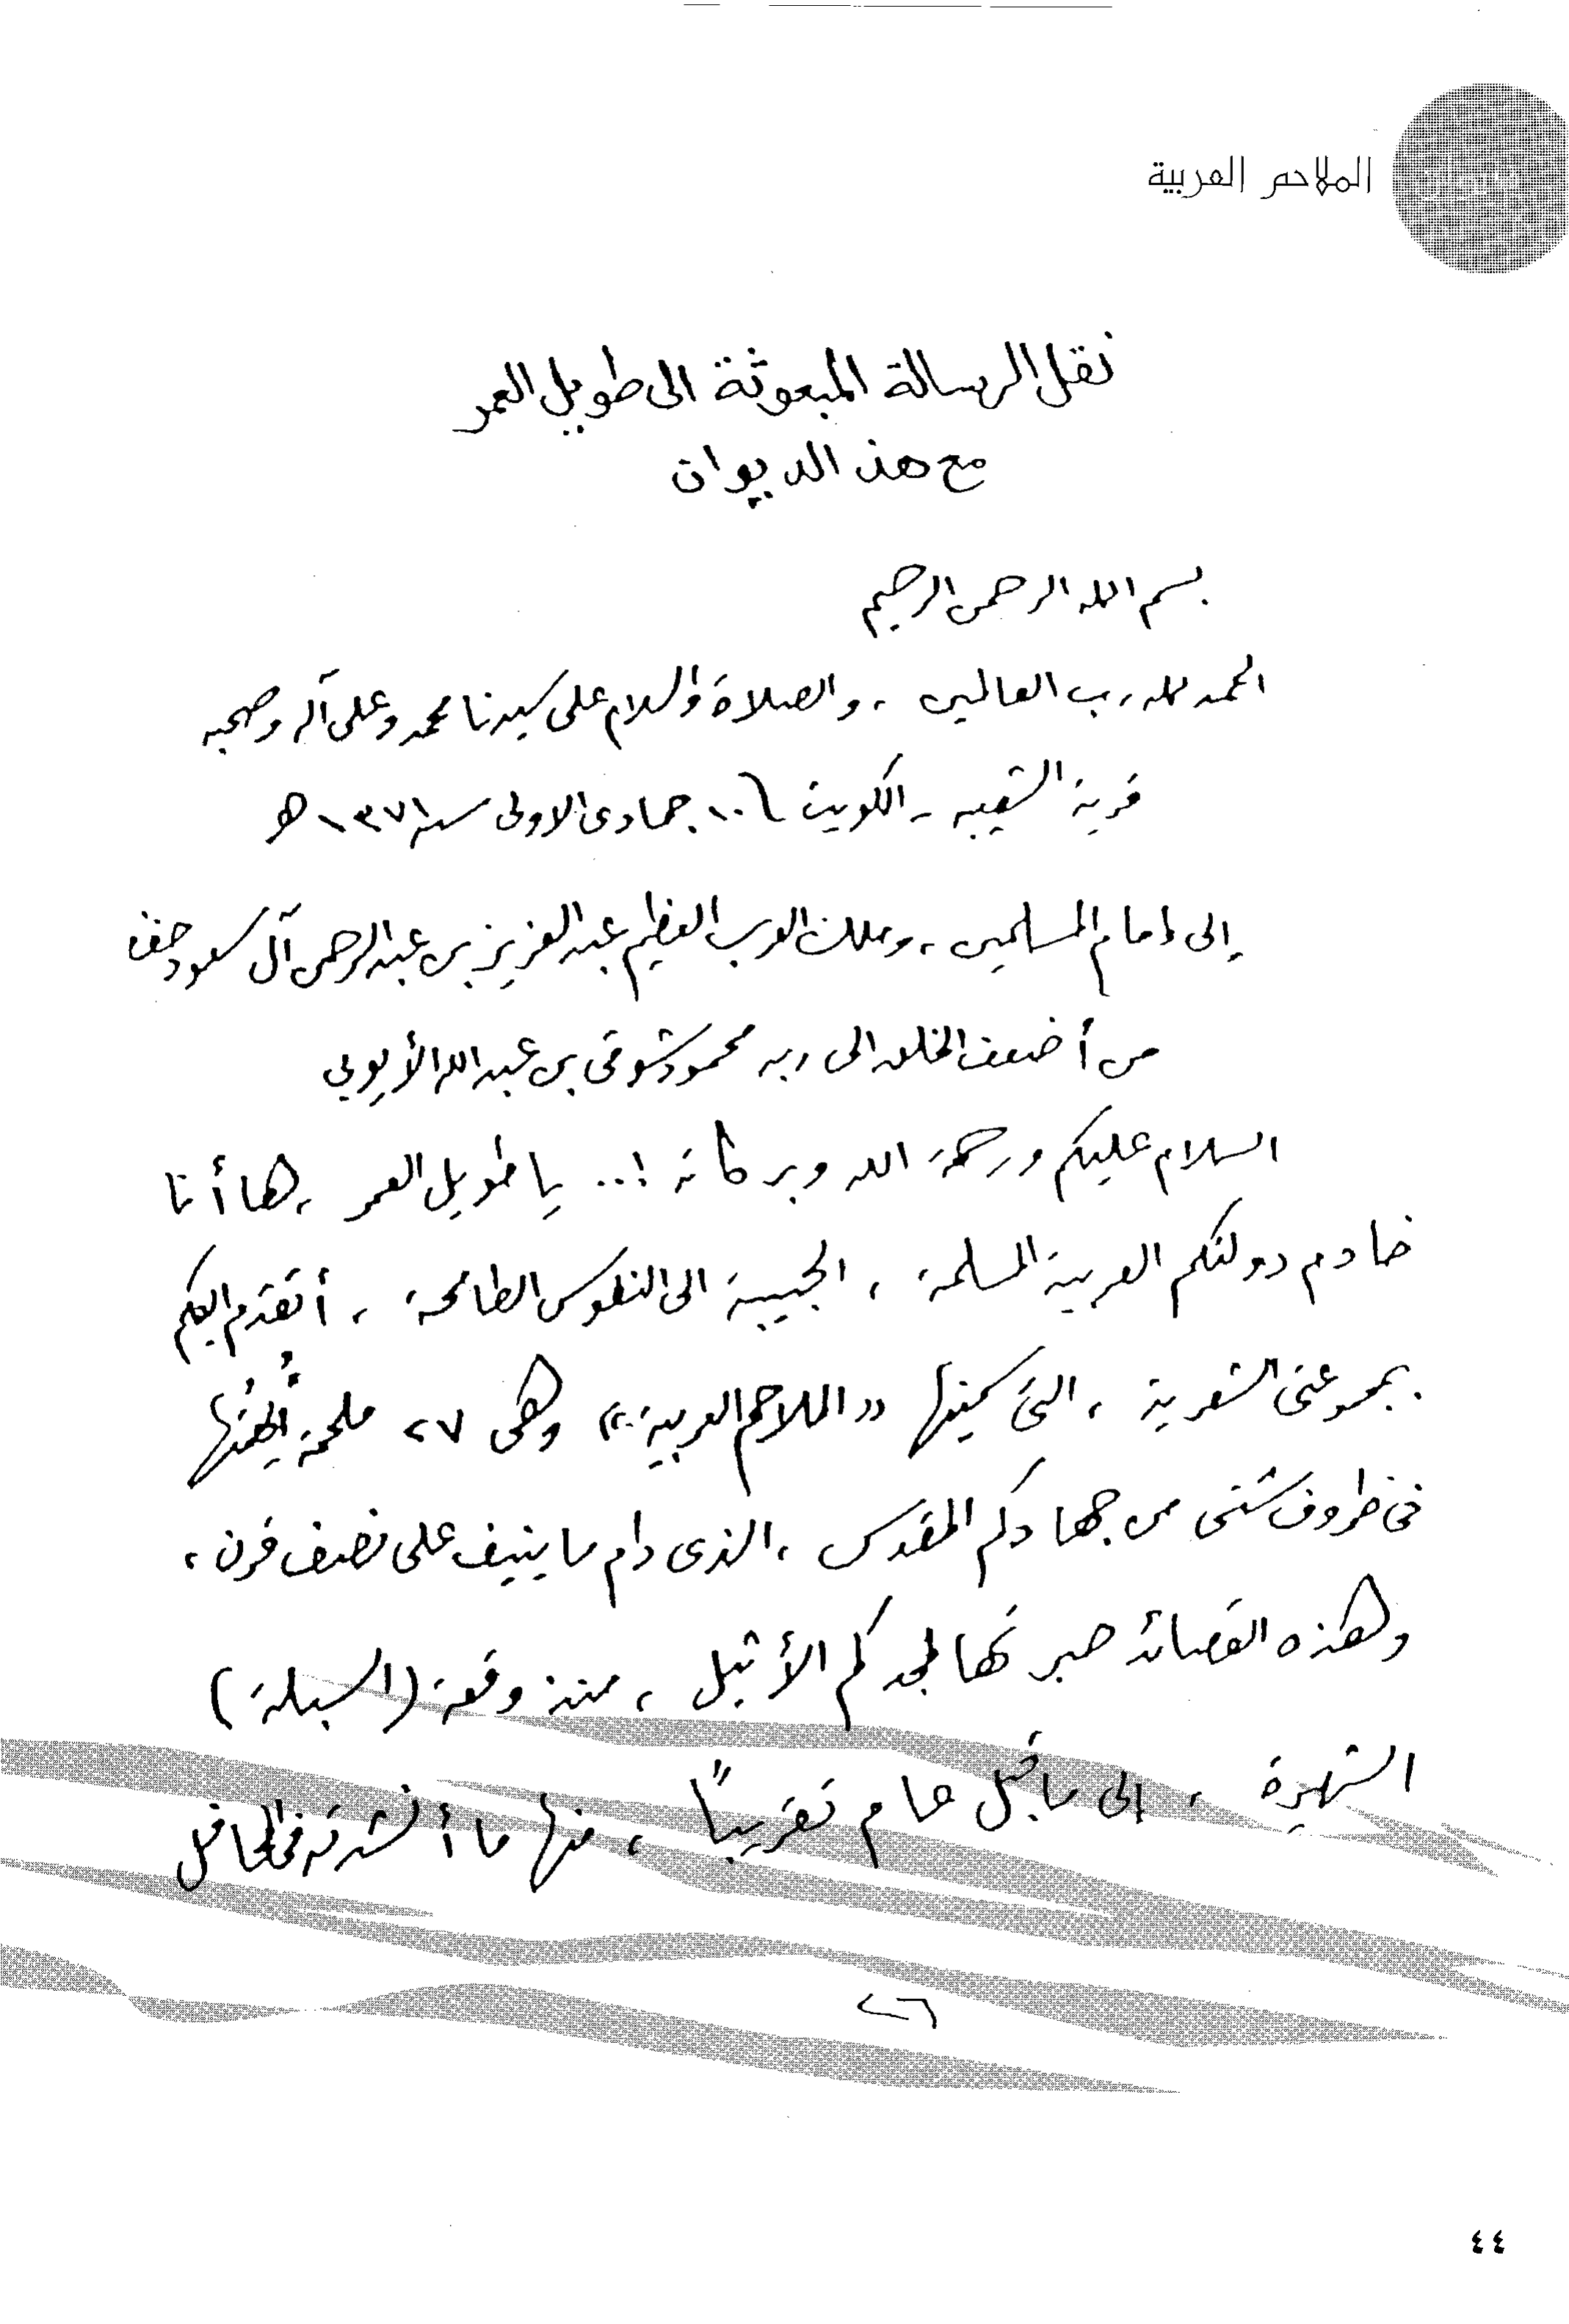 الملاحم العربية
نقل الرسالة المبعوثة الى طويل العمر
مع هذا الديوان
بسم الله الرحمن الرحيم
الحمد لله رب العالمين ، والصلاة والسلام على سيدنا محمد وعلى آله وصحبه
قرية الشعيبه - الكويت ١٠ جمادى الاولى سنة ١٣٧١ هـ
إلى إمام المسلمين ، وملك العرب العظيم عبد العزيز بن عبد الرحمن آل سعود حفظه
من أضعف الخلق الى ربه محمود شوقي بن عبد الله الأيوبي
السلام عليكم ورحمة الله وبركاته !.. يا طويل العمر ، ها أنا
خادم دولتكم العربية المسلمة ، الحبيبة الى النفوس الطامحة ، أتقدم اليكم
بمجموعتى الشعرية ، التى سميتها « الملاحم العربية » وهى ٢٧ ملحمة أُلهمتُها
فى ظروف شتى من جهادكم المقدس ، الذى دام ما ينيف على نصف قرن ،
وهذه القصائد حبرتها لمجدكم الأثيل ، منذ وقعة (السبلة)
الشهيرة ، إلى ما قبل عام تقريباً ، منها ما أنشدته فى المحافل
٢٦
٤٤